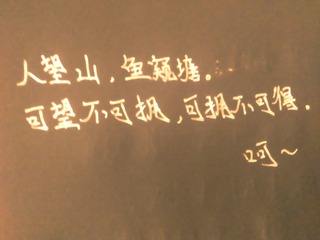 人望山，鱼窥塘。
可望不可拥，可拥不可得。
呵～